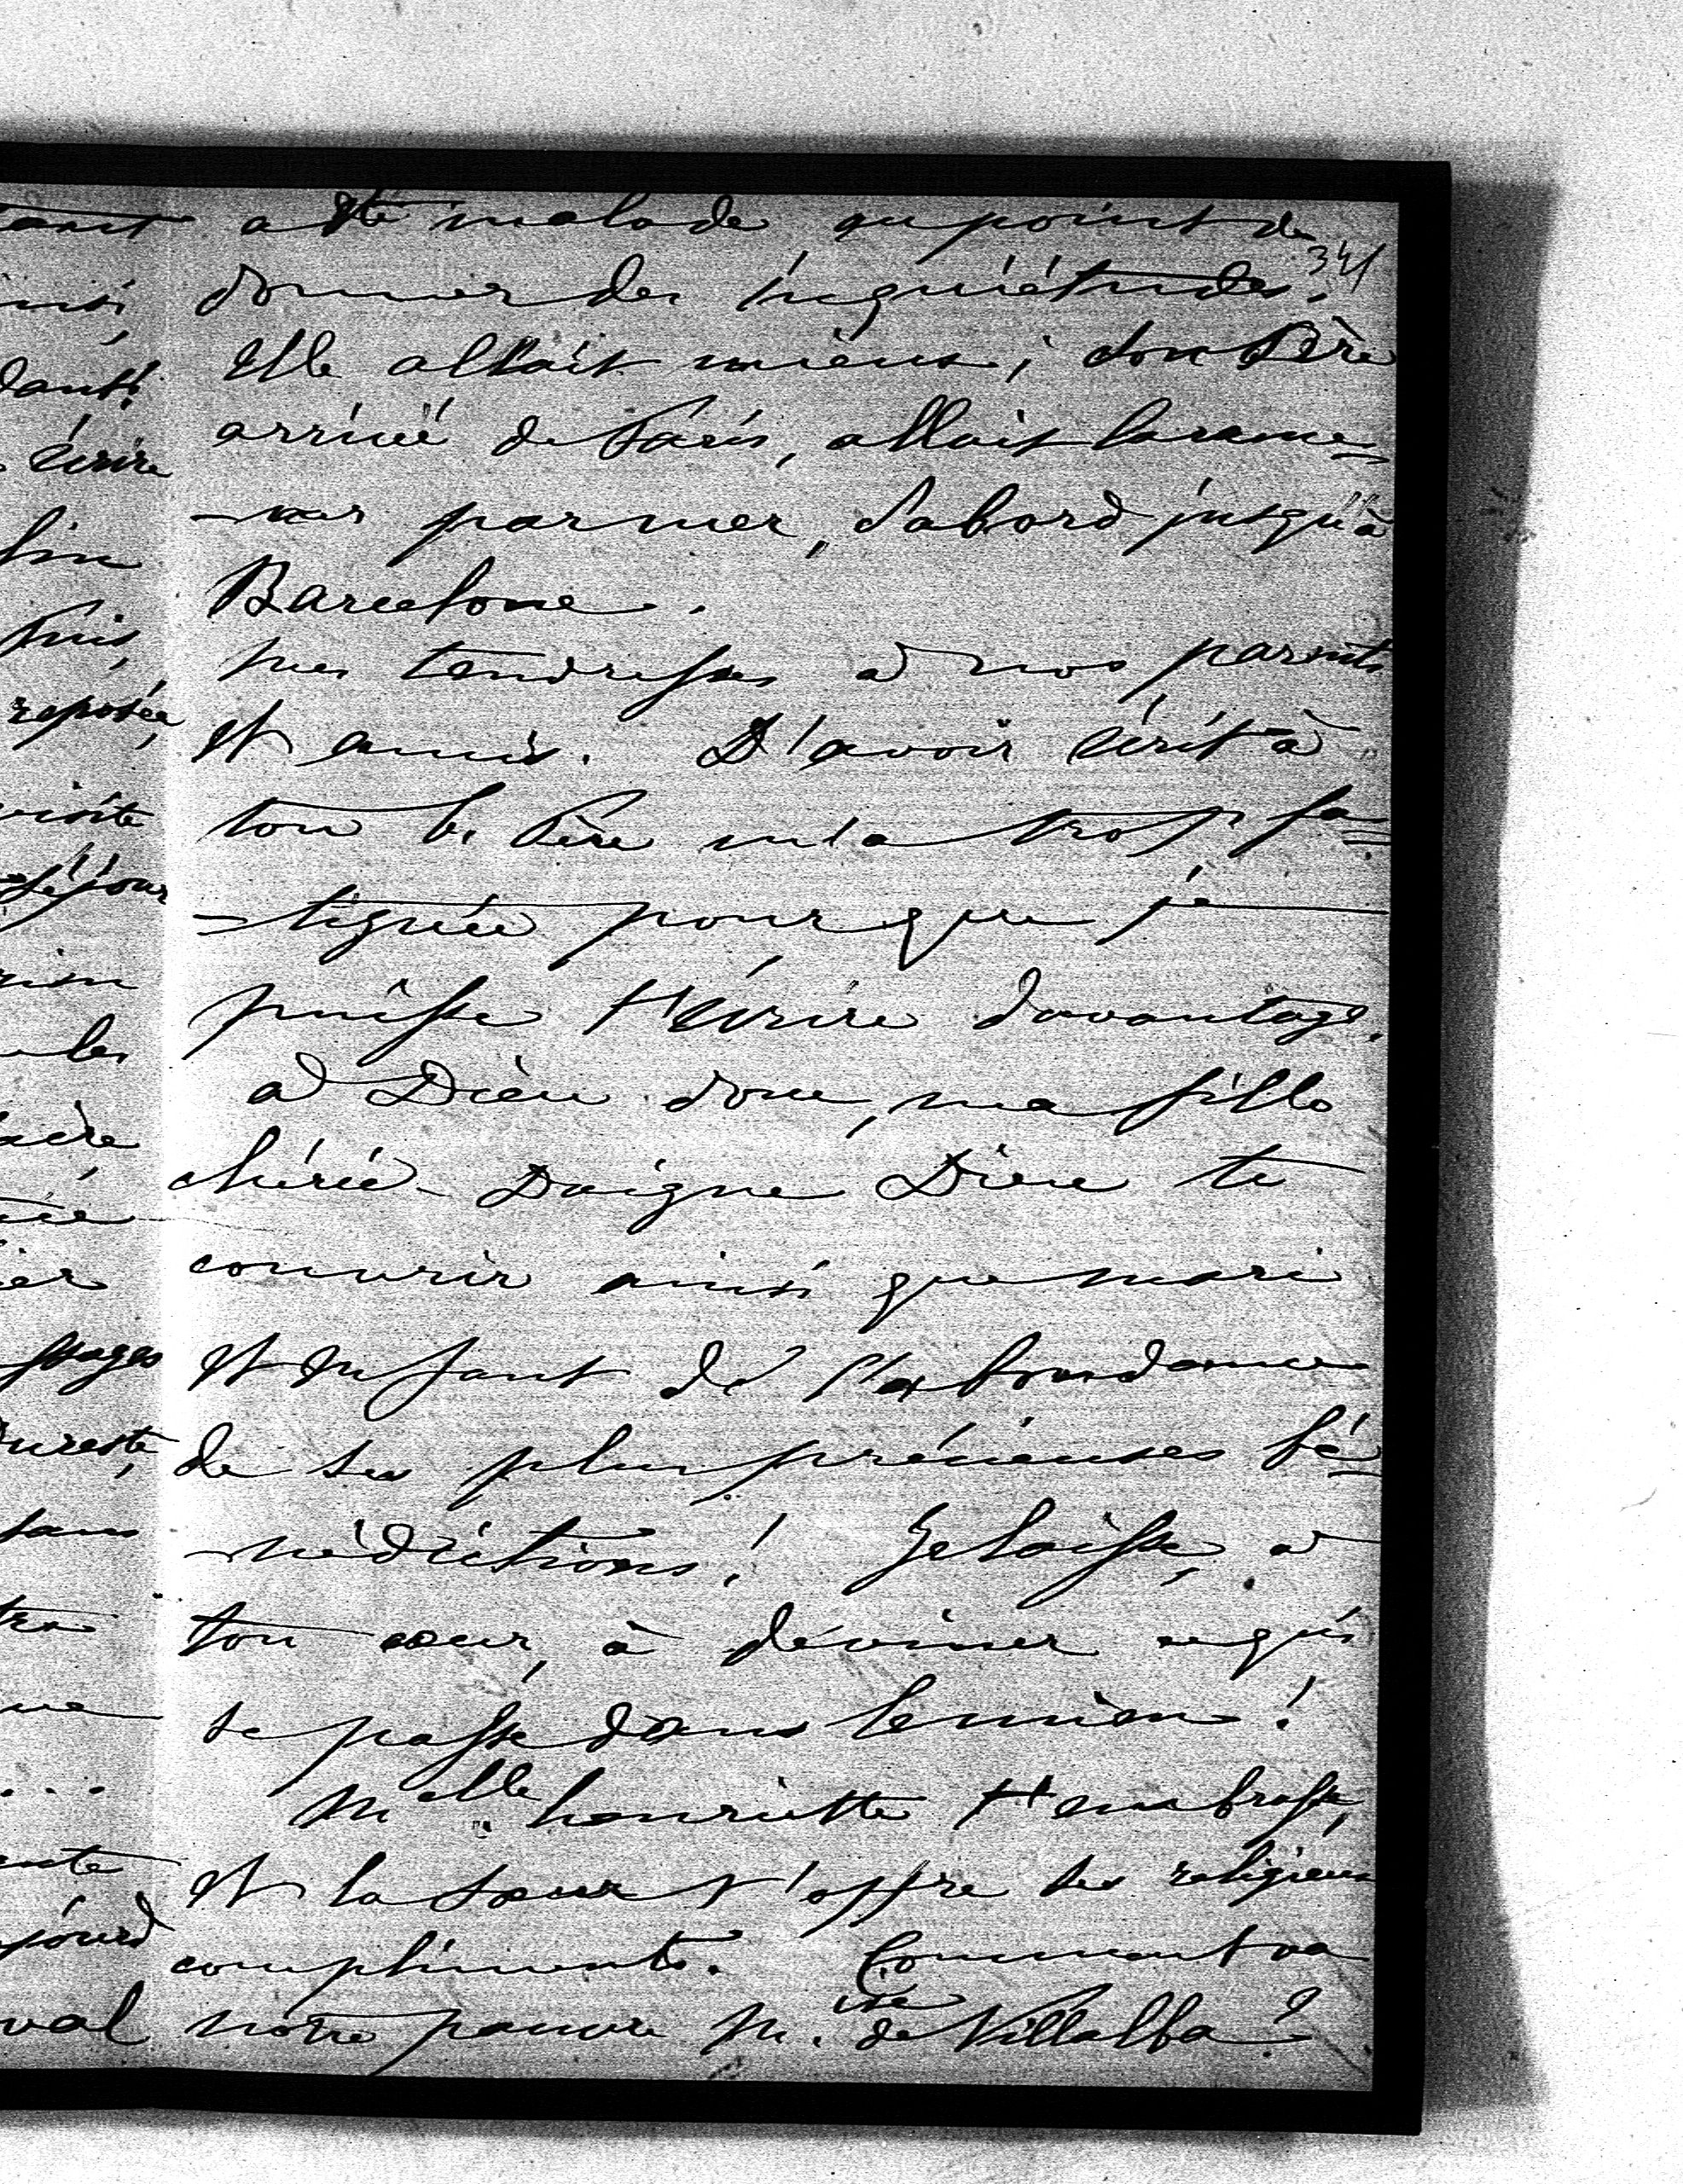 a été malade au point de
341
donner des inquiétudes.
Elle allait mieux; son Père
arrivé de Paris, allait la rame=
-ner par mer, d'abord jusqu'à
Barcelone.
mes tendresses à nos parents
et amis. D'avoir écrit à
ton b. Père m'a trop fa=
=tiguée pour que je
puisse t'écrire davantage.
à Dieu donc, ma fille
chérie - Daigne Dieu te
couvrir ainsi que mari
et enfant de l'abondance
de ses plus précieuses bé=
-nédictions! Je laisse, à
ton cœur, à deviner ce qui
se passe dans le mien!
Melle henriette t'embrasse,
et la Sœur t'offre ses religieux
compliments. Comment va
notre pauvre M.ise de Villalba?
dant!
écrire
fin
Puis,
reposée,
visite
séjour
les
ssages
Du reste,
sans
val